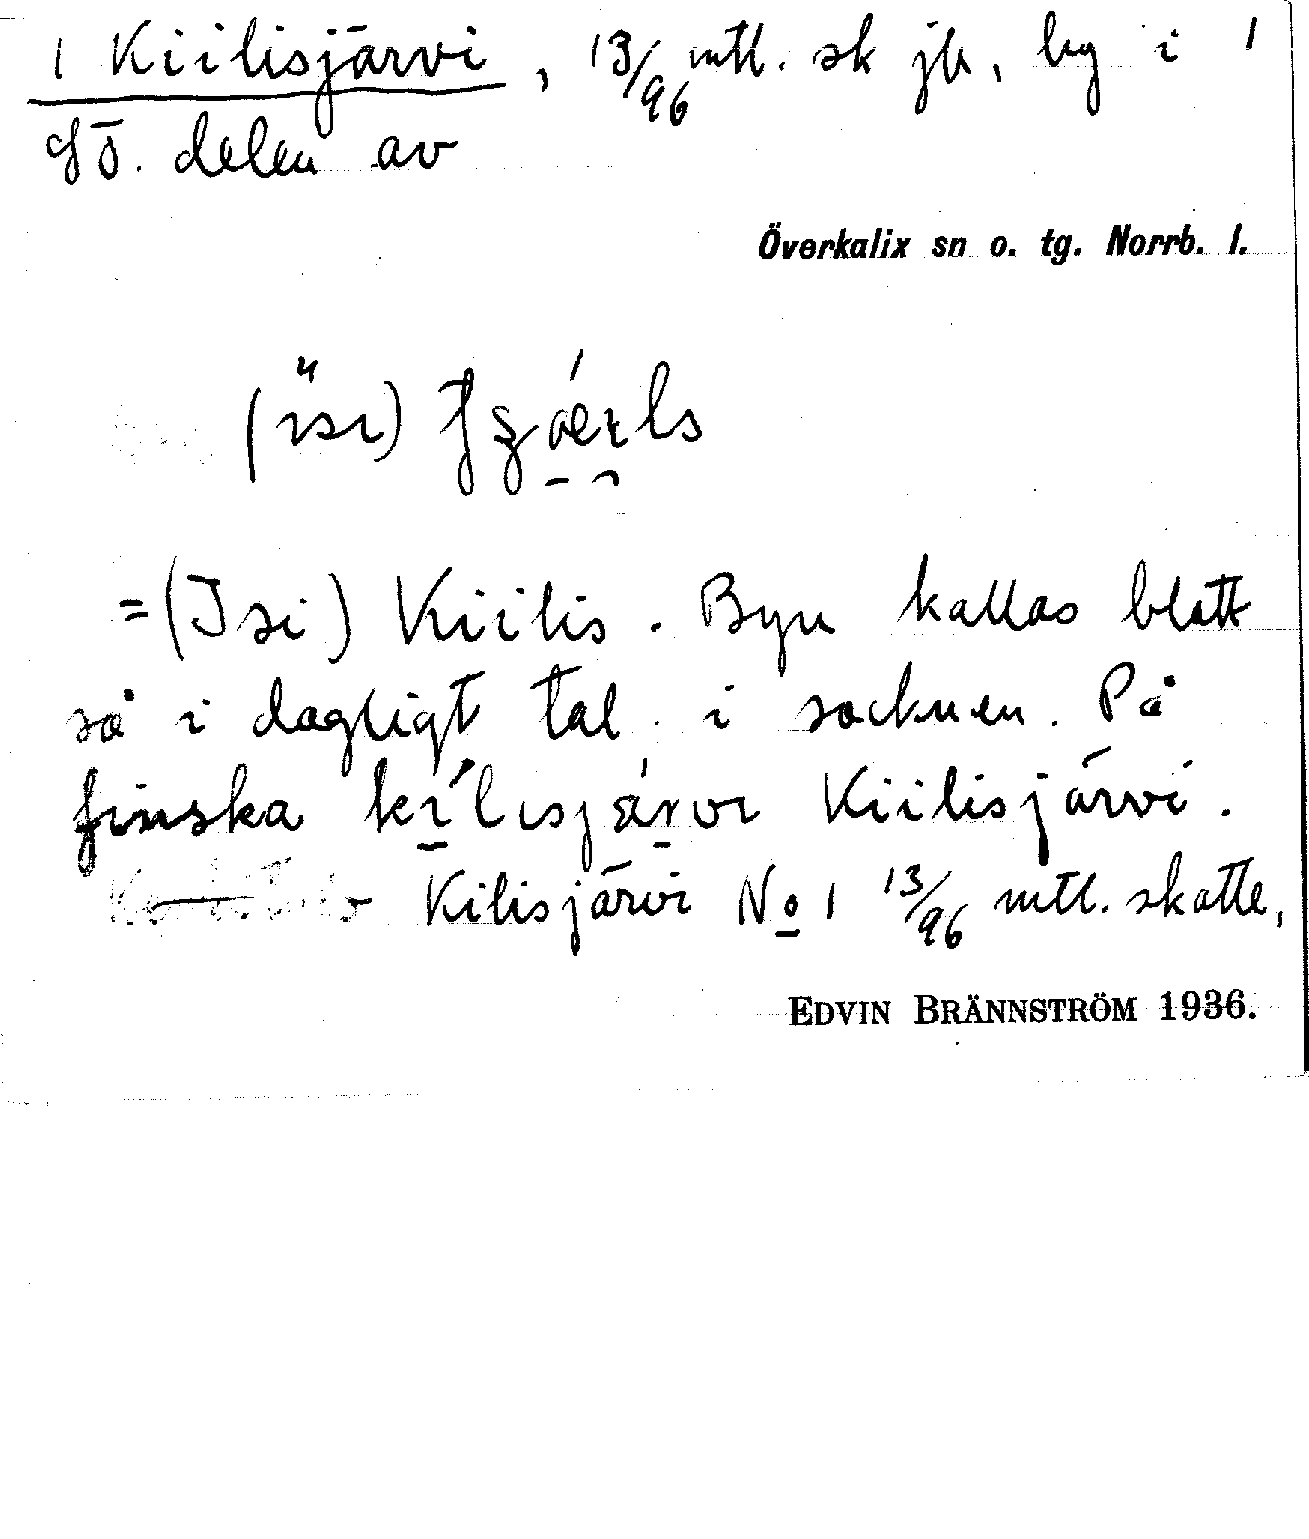 1 Kiilisjärvi, 13/96 mtl. sk jb, by i 1
sö. delen av
Överkalix sn o. tg. Norrb. l.
= (Isi) Kiilis. Byn kallas blott
så i dagligt tal i socknen. På
finska Kiilisjärvi.
Kilisjärvi No 1 13/96 mtl. skatte,
EDVIN BRÄNNSTRÖM 1936.